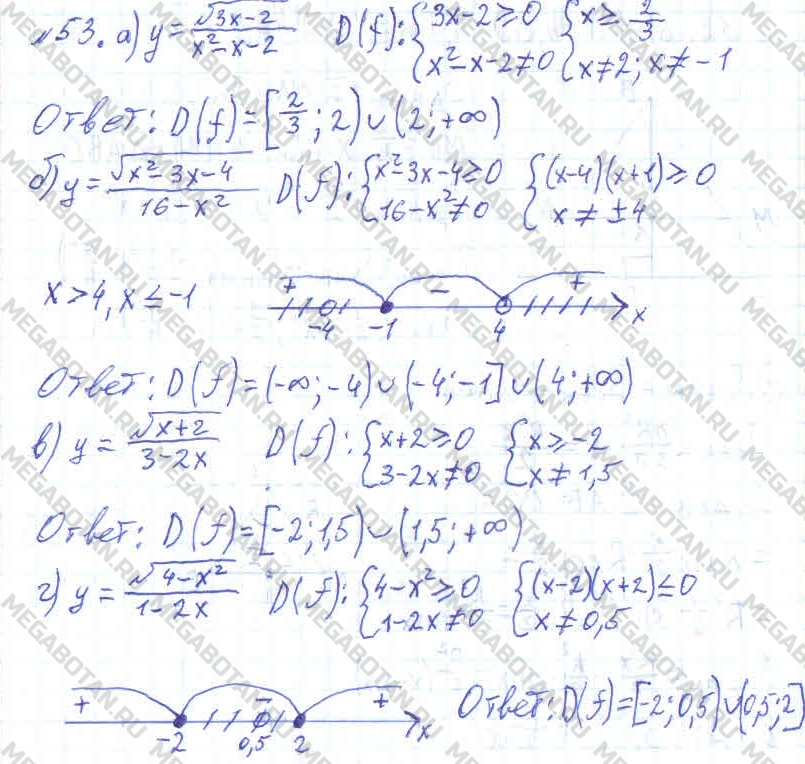 №53. а) y = √(3x-2) / (x²-x-2) D(f): { 3x-2≥0 { x≥ 2/3
x²-x-2≠0 x≠2; x≠-1
Ответ: D(f)=[2/3; 2)∪(2;+∞)
б) y = √(x²-3x-4) / (16-x²) D(f): { x²-3x-4≥0 { (x-4)(x+1)≥0
16-x²≠0 x≠±4
x>4, x≤-1 + - + x
-4 -1 4
Ответ: D(f)=(-∞;-4)∪(-4;-1]∪(4;+∞)
в) y = √(x+2) / (3-2x) D(f): { x+2≥0 { x≥-2
3-2x≠0 x≠1,5
Ответ: D(f)=[-2;1,5)∪(1,5;+∞)
г) y = √(4-x²) / (1-2x) D(f): { 4-x²≥0 { (x-2)(x+2)≤0
1-2x≠0 x≠0,5
+ - + x Ответ: D(f)=[-2;0,5)∪(0,5;2]
-2 0,5 2
MEGABOTAN.RU